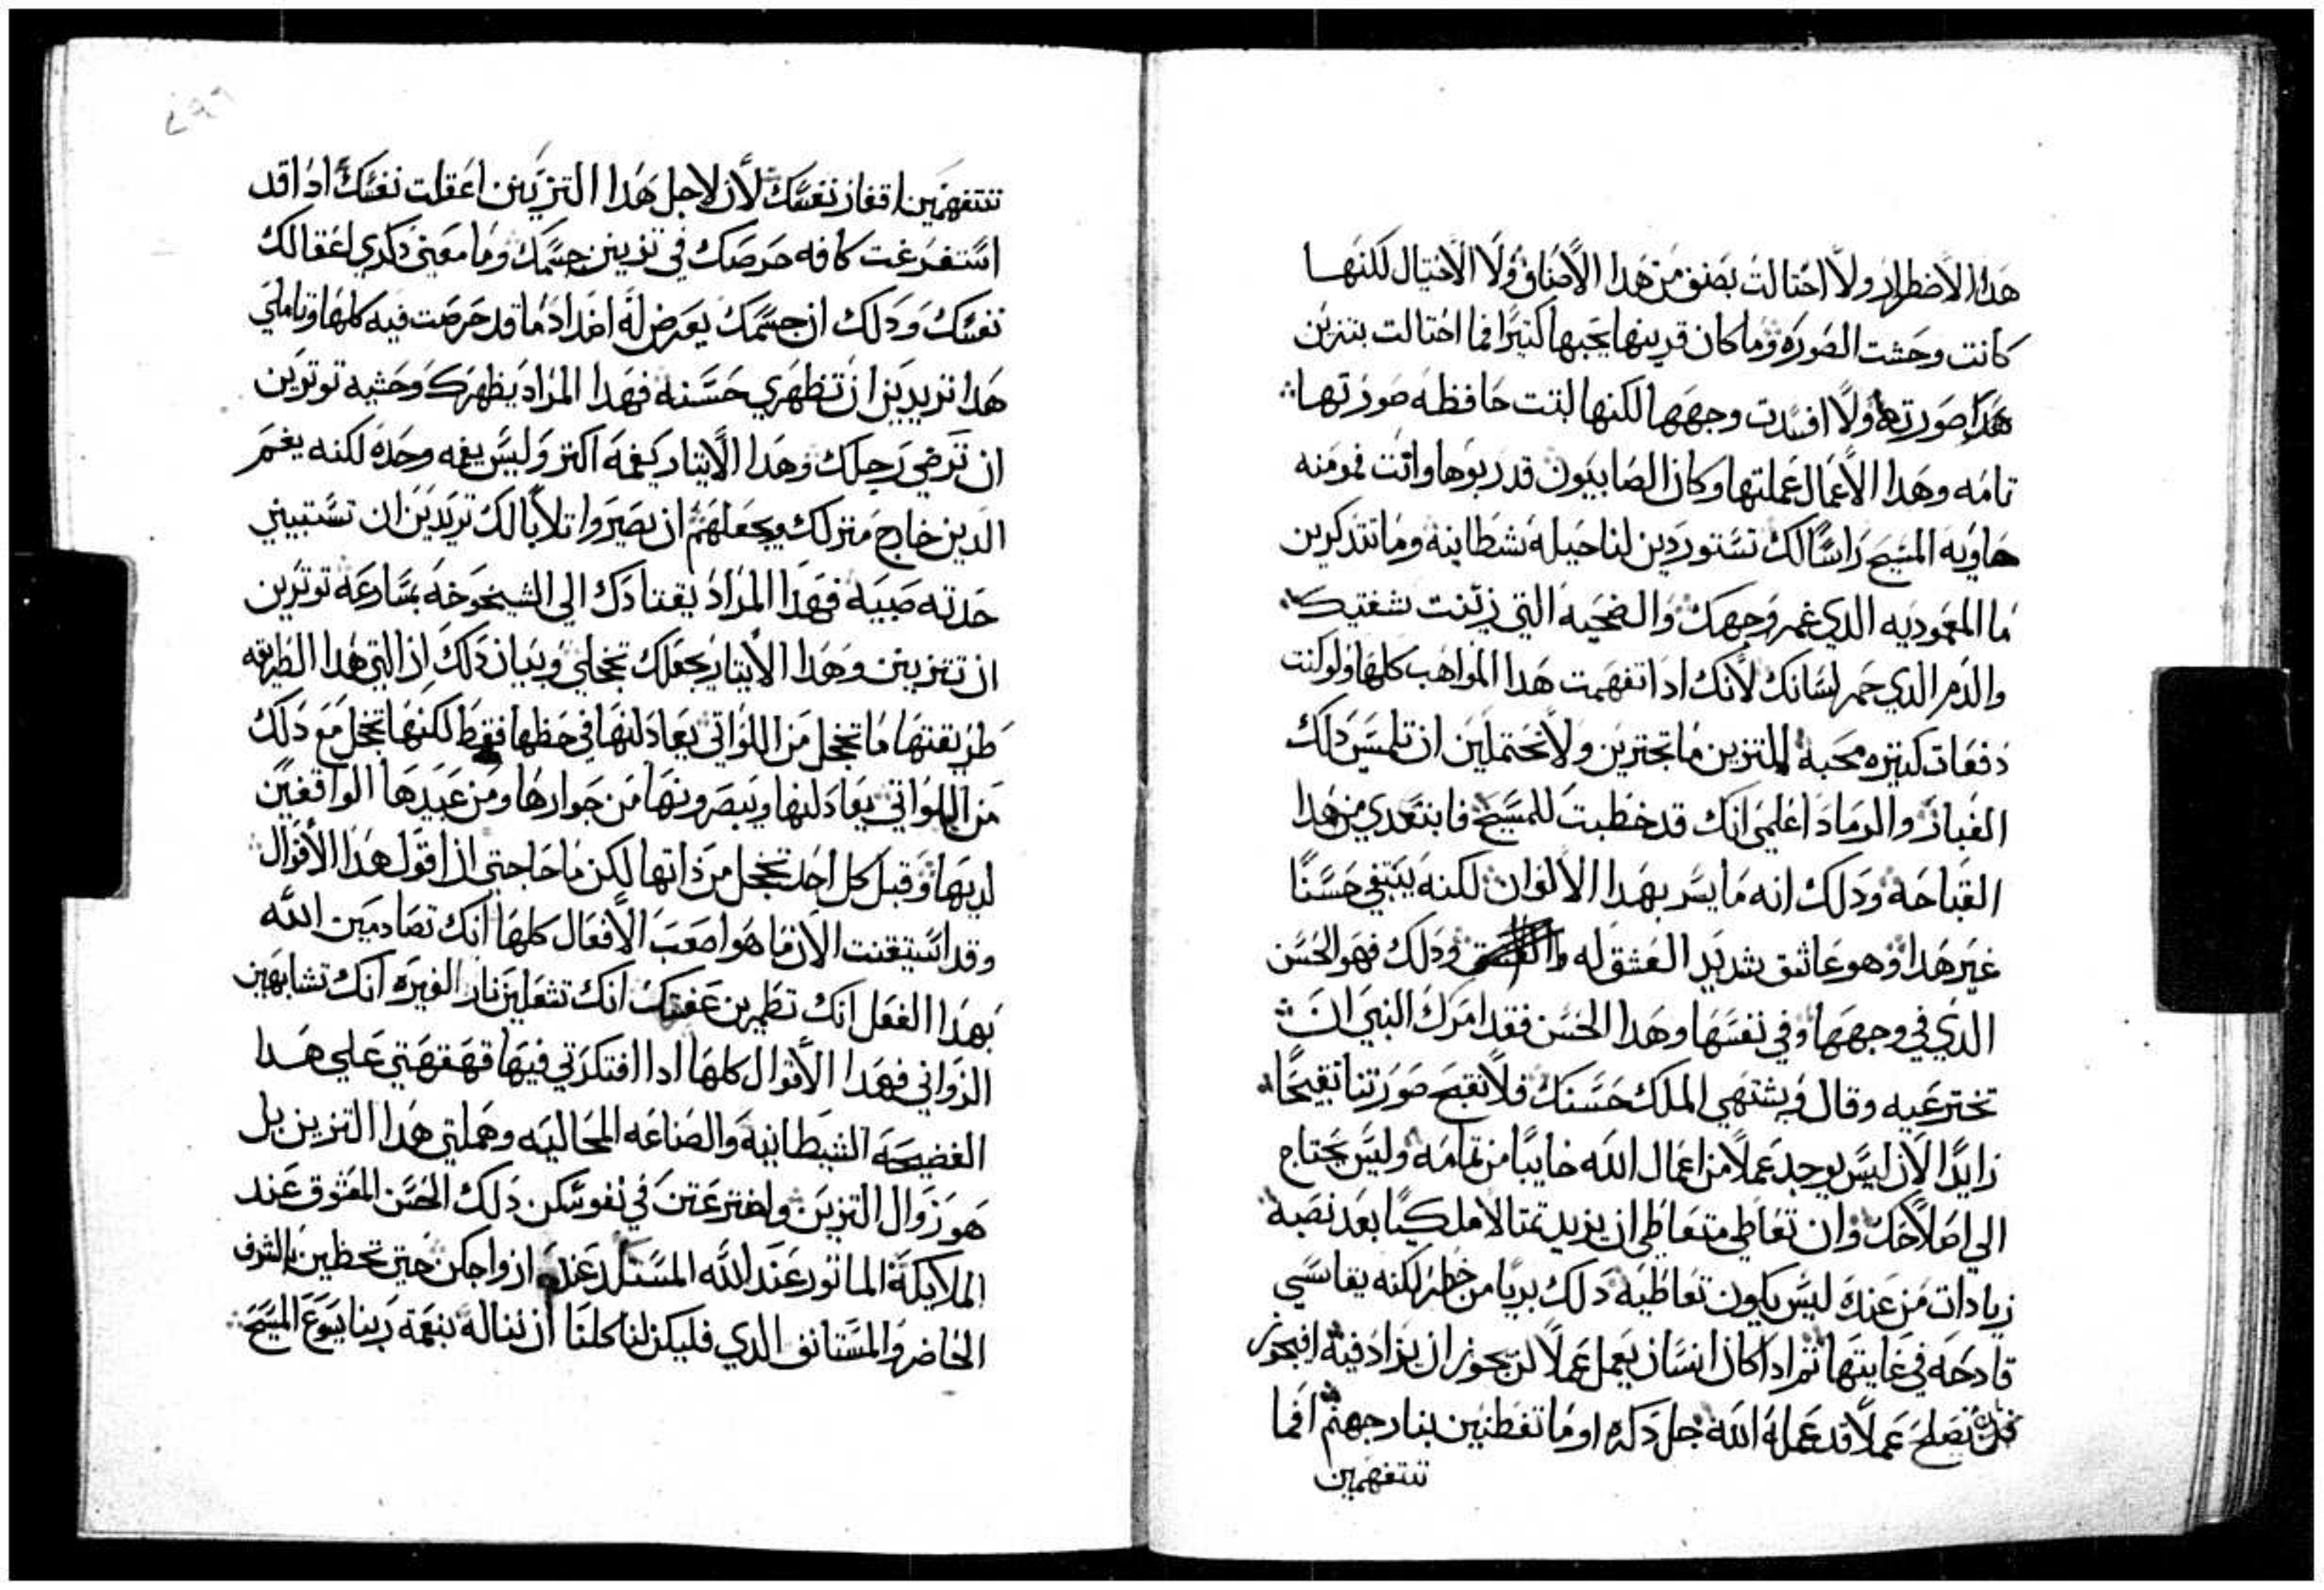 هدا الاضطرار ولا احتالت بصنف من هدا الأصناف ولا الاحتيال لكنها
كانت وحشت الصوره وما كان قرينها يحبها كثيرًا فما احتالت بتزين
هدا صورتها ولا افسدت وجهها لكنها لبتت حافظه صورتها
تامه وهدا الأعمال عملتها وكان الصابيون قد ربوها وانت فمومنه
حاويه المسيح راسًا لك تستوردين لنا حيله شطانيه وما تتدكرين
ما المعموديه الدي غمر وجهك والضحيه التي زينت شفتيك
والدم الدي حمر لسانك لأنك ادا تفهمت هدا المواهب كلها ولو كنت
دفعات كتيره محبه للتزين ما تجترين ولا تحتملين ان تلمسين دلك
الغبار والرماد اعلمي انك قد خطبت للمسيح فابتعدي من هدا
القباحه ودلك انه ما يسر بهدا الالوان لكنه يبتغي حسنًا
غير هدا وهو عاشق شديد العشق له ودلك فهو الحسن
الدي في وجهها وفي نفسها وهدا الحسن فقد امرك النبي ان
تخترعيه وقال فيشتهي الملك حسنك فلا نقبح صورتنا تقبيحًا
زايدًا لأن ليس يوجد عملًا من اعمال الله خايبًا من تمامه وليس يحتاج
الي اصلاحك وان تعاطي متعاطي ان يزيد تمتالا ملكيًا بعد نصبه
زيادات من عنده ليس يكون تعاطيه دلك بريا من خطر لكنه يقاسي
قادحه في غايتها ثم ادا كان انسان يعمل عملًا لن يجوز ان يزاد فيه افيجوز
ان تصلح عملًا قد عمله الله جل دكره او ما تفطنين بنار جهنم افما
تتفهمين
تتفهمين اقفار نفسك لأن لاجل هدا التزيين اعقلت نفسك ادا قد
استفرغت كافه حرصك في تزيين جسمك وما معني دكري اعقالك
نفسك ودلك ان جسمك يعرض له اضداد ما قد حرصت فيه كلها وتاملي
هدا تريدين ان تظهري حسنه فهدا المراد يظهرك وحشيه توترين
ان ترضي رجلك وهدا الايتار يغمه اكتر وليس يغمه وحده لكنه يغم
الدين خارج منزلك ويجعلهم ان يصيروا تلابًا لك تريدين ان تستبيني
حدته صبيه فهدا المراد يقتادك الي الشيخوخه بسارعه توترين
ان تتزيين وهدا الأيتار يجعلك تخجلي وبيان دلك ان التي هدا الطريقه
طريقتها ما تخجل من اللواتي يعادلنها في حظها فقط لكنها تخجل مع دلك
من اللواتي يعادلنها ويبصرونها من جوارها ومن عبيدها الواقفين
لديها وقبل كل احد تخجل من داتها لكن ما حاجتي ان اقول هدا الأقوال
وقد استيقنت الأن ما هو اصعب الأفعال كلها انك تصادمين الله
بهدا الفعل انك تطمرين عفتك انك تشعلين نار الغيره انك تشابهين
الزواني فهدا الأقوال كلها ادا افتكرتي فيها قهقهتي علي هدا
الفضيحه الشيطانيه والصناعه المحاليه وهملتي هدا التزين بل
هو زوال التزين واخترعتن في نفوسكن دلك الحسن المعشوق عند
الملايكة الماتور عند الله المستلد عند ازواجكن حتي تحظين بالشرف
الحاضر والمستانف الدي فليكن لنا كلنا ان نناله بنعمة ربنا يسوع المسيح